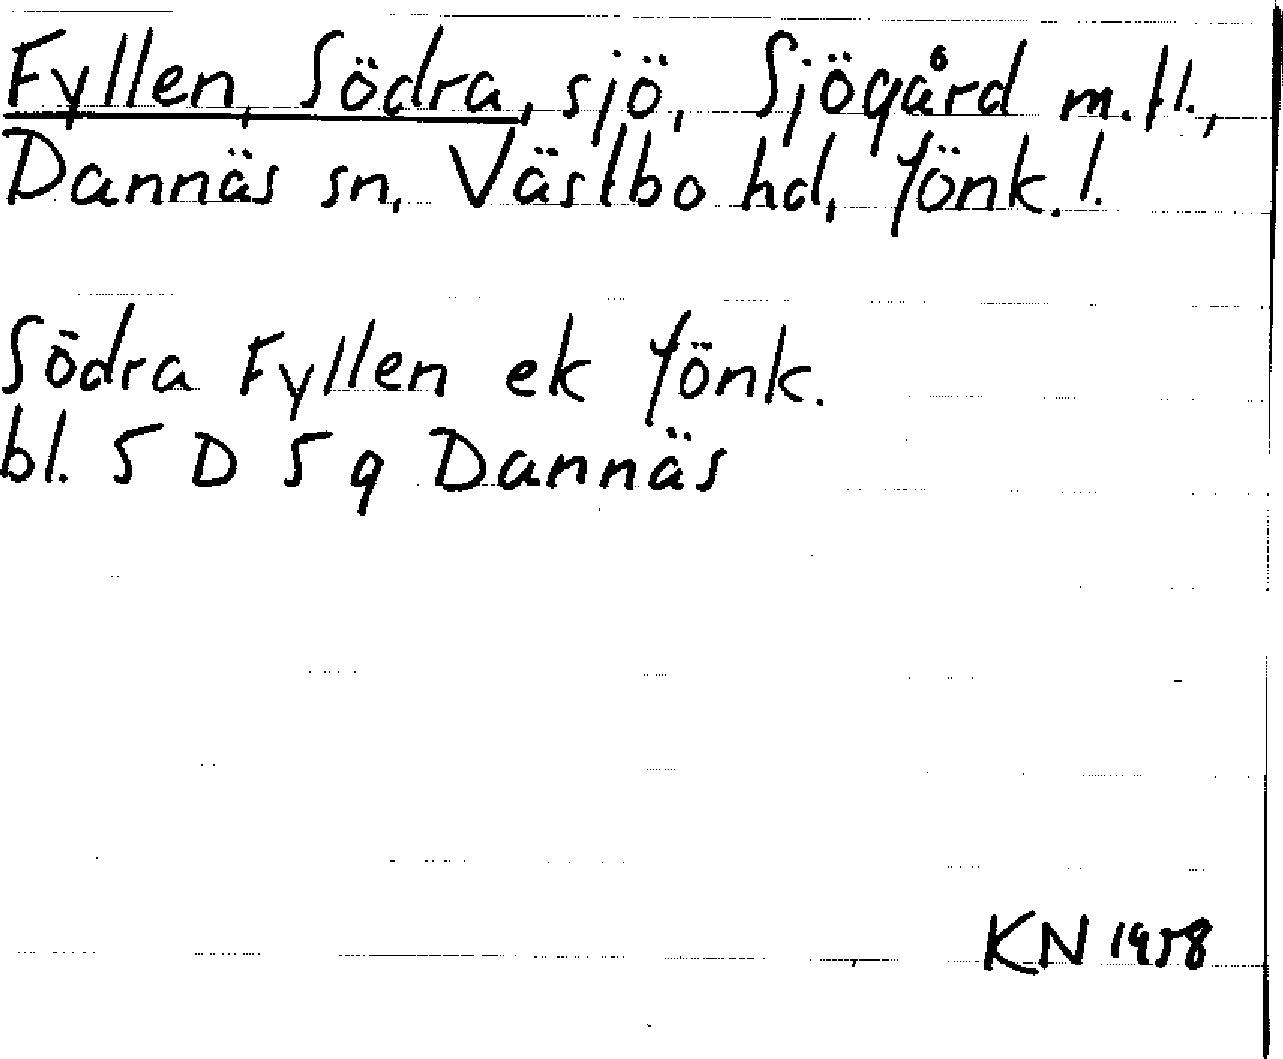 Fyllen, Södra, sjö, Sjögård m.fl.,
Dannäs sn, Västbo hd, Jönk. l.
Södra Fyllen ek Jönk.
bl. 5 D 5 g Dannäs
KN 1958